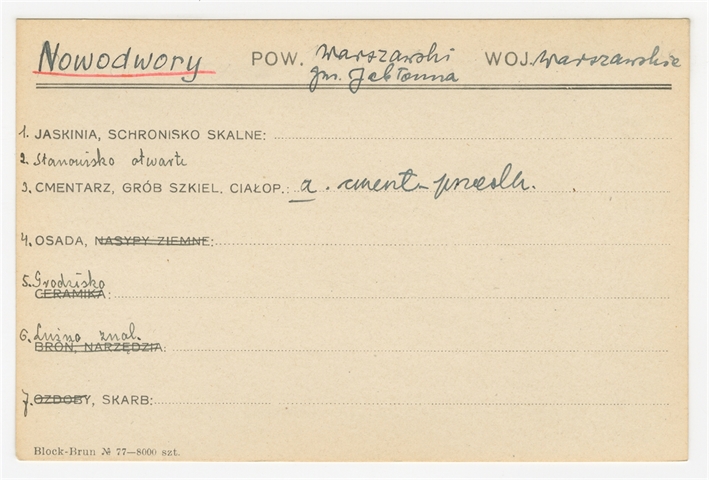 Nowodwory POW. Warszawski WOJ. Warszawskie
gm. Jabłonna
1. JASKINIA, SCHRONISKO SKALNE:
2. Stanowisko otwarte
3. CMENTARZ, GRÓB SZKIEL. CIAŁOP.: a. cment.
4. OSADA, NASYPY ZIEMNE:
5. Grodzisko
CERAMIKA:
6. Luźno znal.
BROŃ, NARZĘDZIA:
7. OZDOBY, SKARB:
Block-Brun № 77—8000 szt.